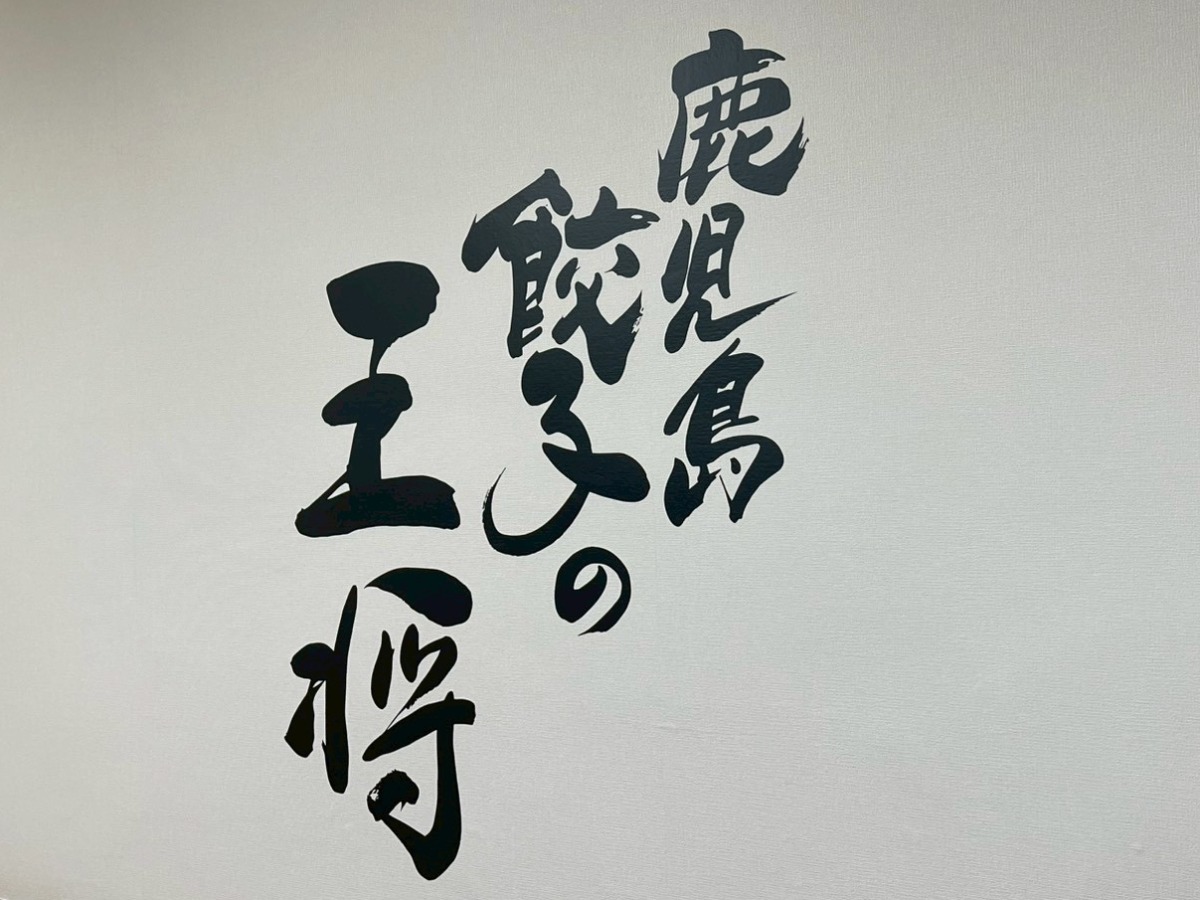 鹿児島
餃子の
王将